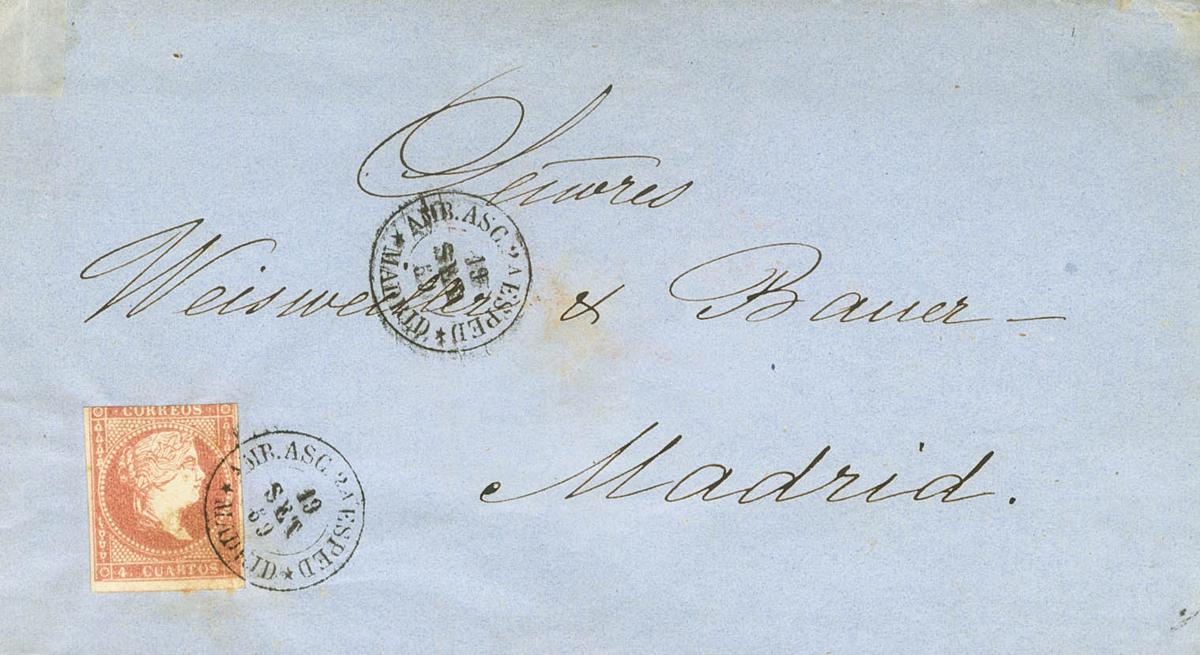 Señores
AMB. ASC. 2A ESPED ★ MADRID ★
19
SET
59
Weisweiller & Bauer –
CORREOS
4. CUARTOS
AMB. ASC. 2A ESPED ★ MADRID ★
19
SET
59
Madrid.